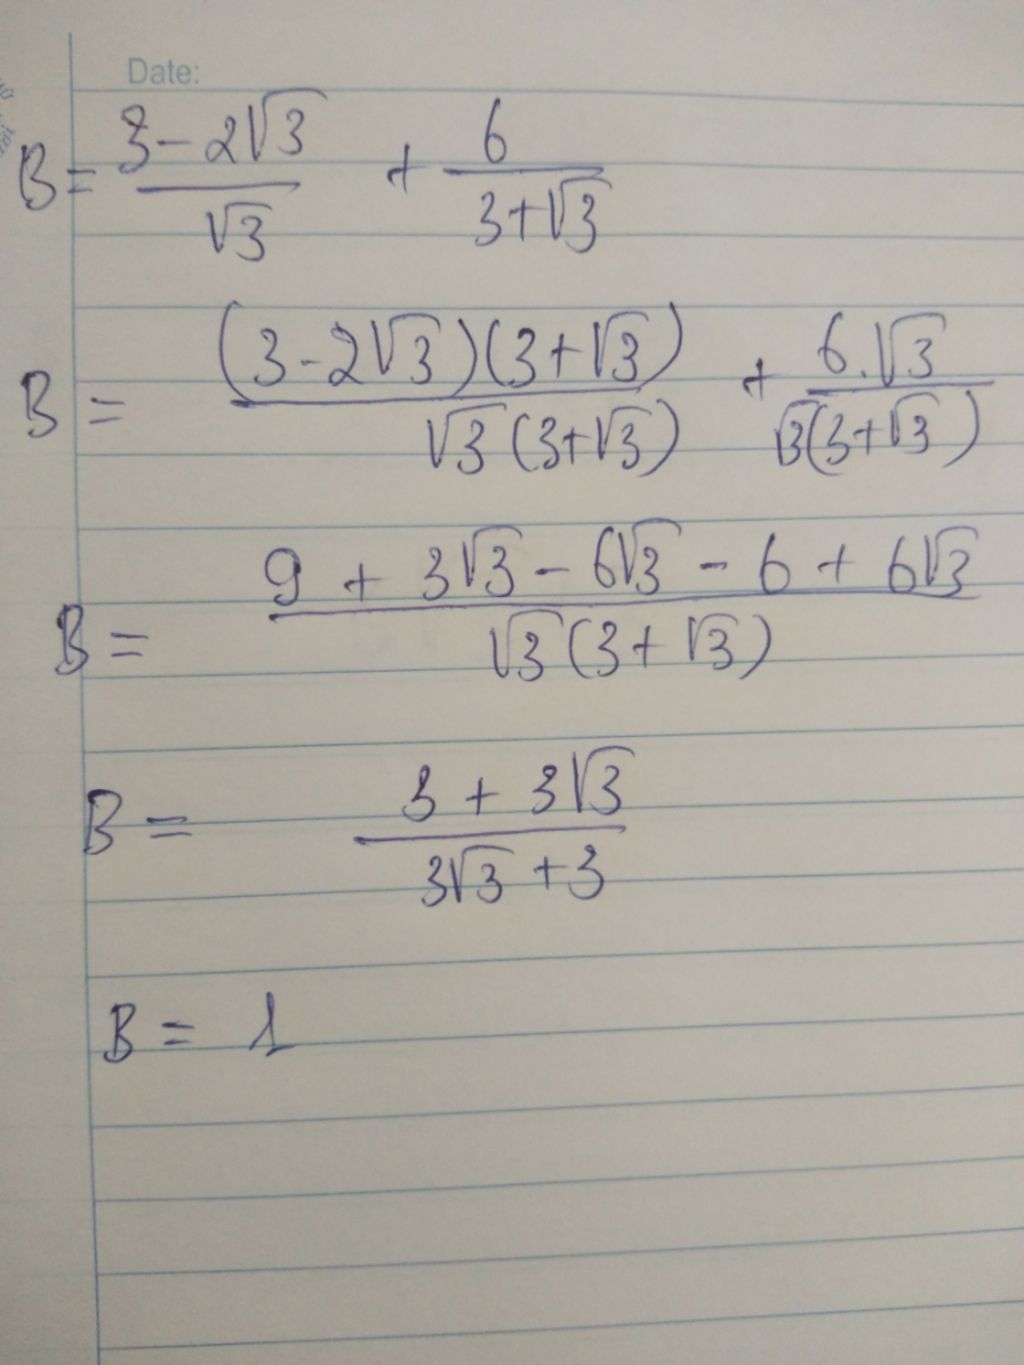 Date:
B = \frac{3 - 2\sqrt{3}}{\sqrt{3}} + \frac{6}{3+\sqrt{3}}
B = \frac{(3 - 2\sqrt{3})(3+\sqrt{3})}{\sqrt{3}(3+\sqrt{3})} + \frac{6.\sqrt{3}}{\sqrt{3}(3+\sqrt{3})}
B = \frac{9 + 3\sqrt{3} - 6\sqrt{3} - 6 + 6\sqrt{3}}{\sqrt{3}(3+\sqrt{3})}
B = \frac{3 + 3\sqrt{3}}{3\sqrt{3} + 3}
B = 1